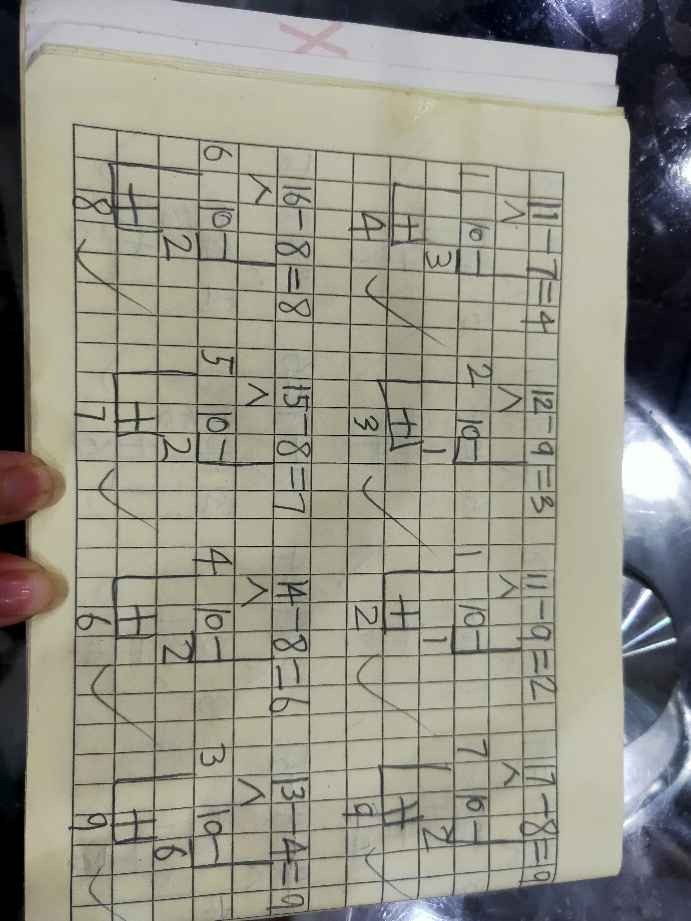 11-7=4 12-9=3 11-9=2 17-8=9
1 10 2 10 1 10 7 10
3 1 1 2
4 3 2 9
16-8=8 15-8=7 14-8=6 13-4=9
6 10 5 10 4 10 3 10
2 2 2 6
8 7 6 9